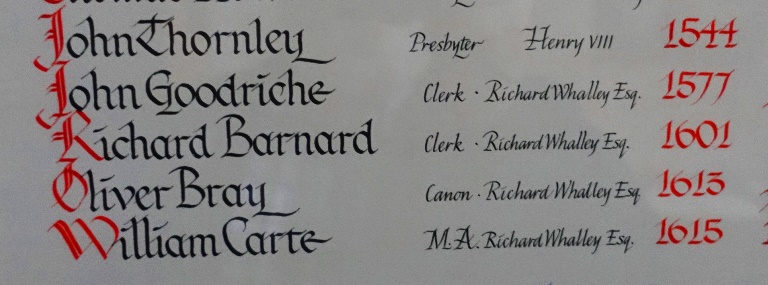 John Thornley Presbyter Henry VIII 1544
John Goodriche Clerk · Richard Whalley Esq. 1577
Richard Barnard Clerk · Richard Whalley Esq. 1601
Oliver Bray Canon · Richard Whalley Esq 1613
William Carte M.A. Richard Whalley Esq. 1615